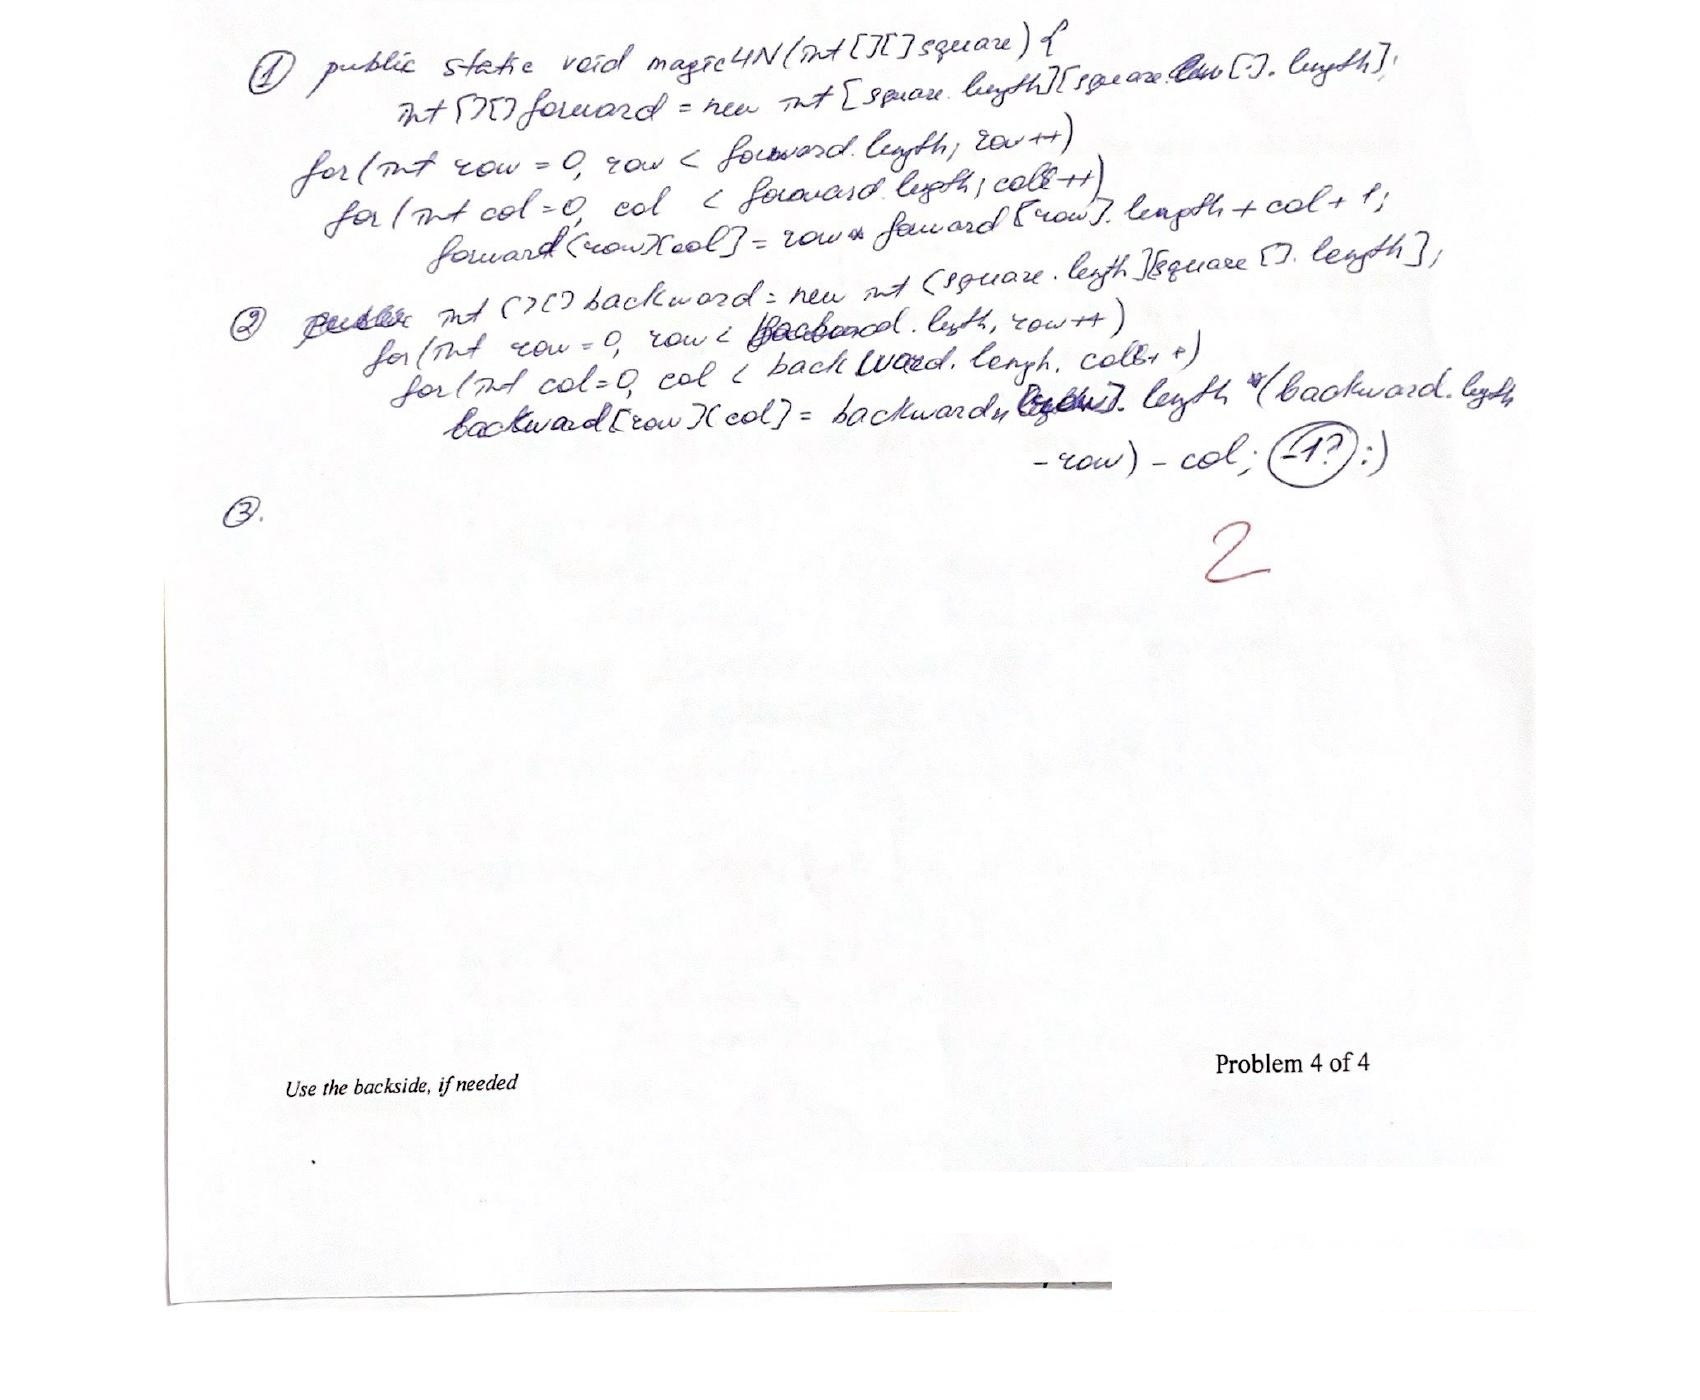 ① public static void magic4N(int[][] square) {
int [][] forward = new int [square.length][square [].length];
for (int row = 0, row < forward.length; row++)
for (int col = 0, col < forward.legth; coll++)
forward[row][col] = row * forward [row].length + col + 1;
② int [][] backward = new int [square.length][square [].length];
for (int row = 0, row < backward.legth, row++)
for (int col = 0, col < backward.lengh. coll++)
backward[row][col] = backward length * (backward.legth
- row) - col; -1? :)
③.
2
Use the backside, if needed
Problem 4 of 4